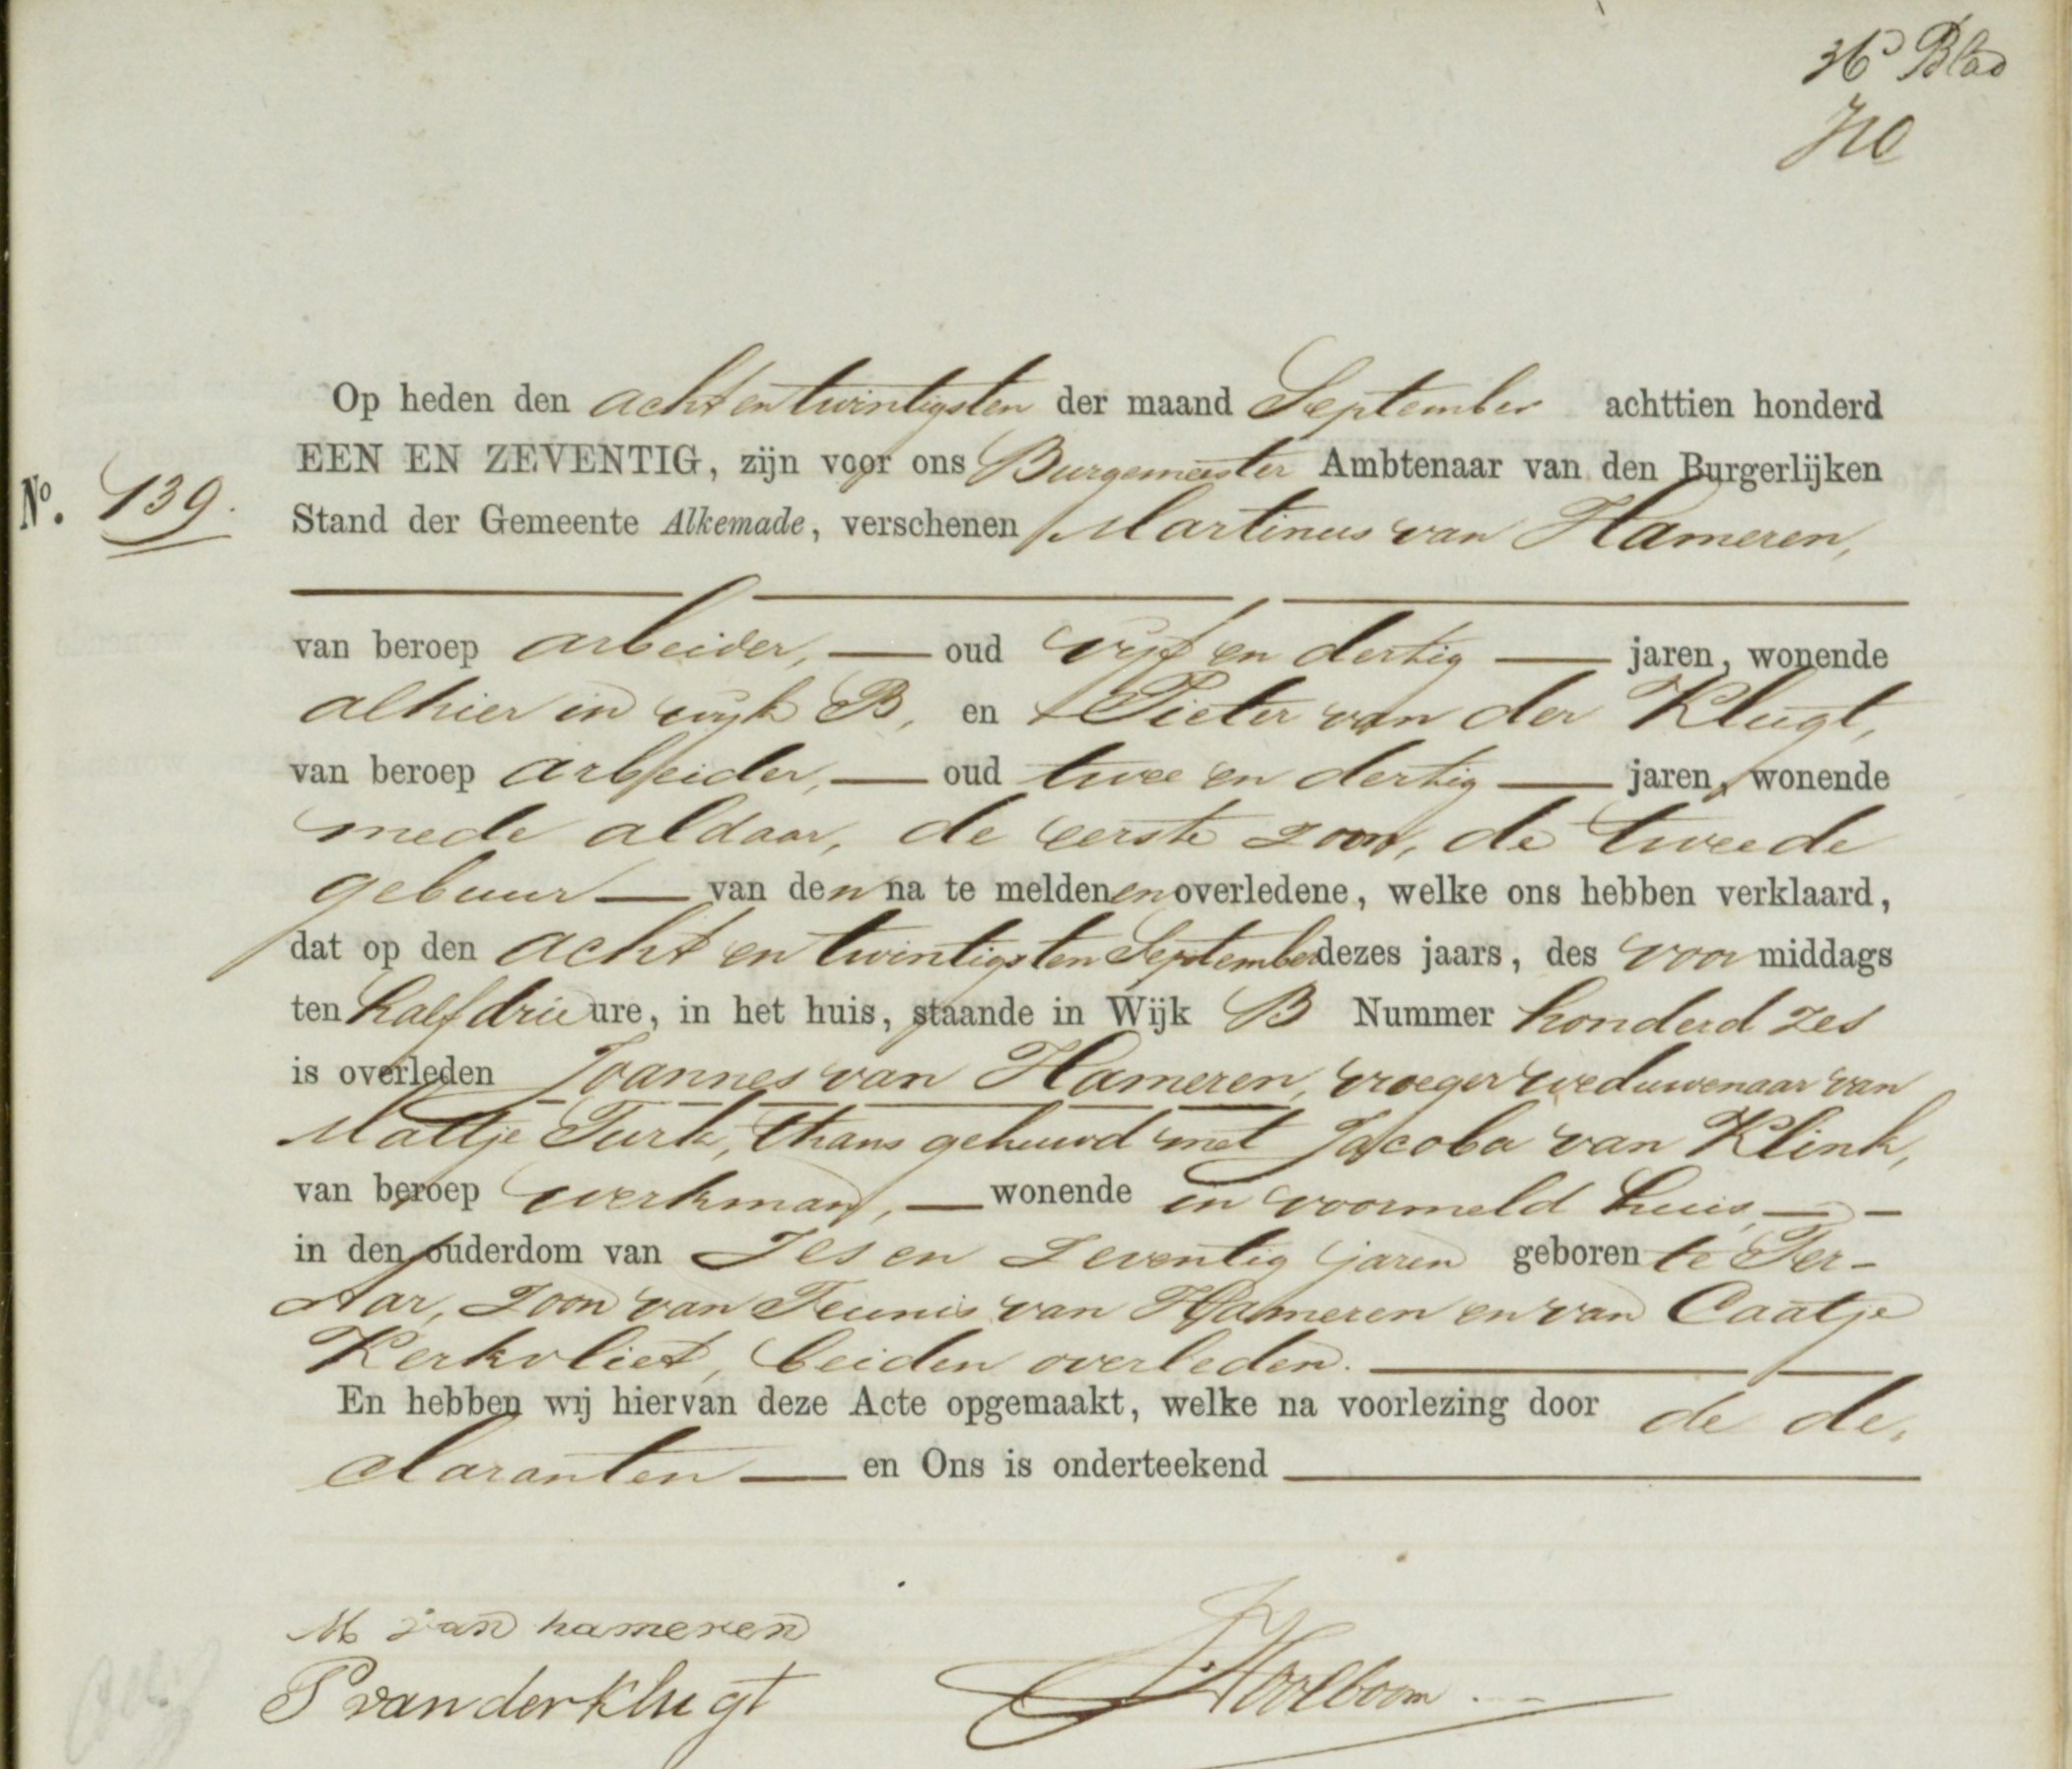 36e Blad
Op heden den achtentwintigsten der maand September achttien honderd
EEN EN ZEVENTIG, zijn voor ons Burgemeester Ambtenaar van den Burgerlijken
No. 139.
Stand der Gemeente Alkemade, verschenen Martinus van Hameren,
van beroep arbeider, — oud vijf en dertig — jaren, wonende
alhier in wijk B, en Pieter van der Klugt,
van beroep arbeider, — oud twee en dertig — jaren, wonende
mede aldaar, de eerste zoon, de tweede
gebuur — van den na te meldenen overledene, welke ons hebben verklaard,
dat op den acht en twintigsten September dezes jaars, des voor middags
ten half drie ure, in het huis, staande in Wijk B Nummer honderd zes
is overleden Joannes van Hameren, vroeger weduwenaar van
Matje Turk, thans gehuwd met Jacoba van Klink,
van beroep werkman, — wonende in voormeld huis, — —
in den ouderdom van Zes en Zeventig jaren geboren te Ter-
Aar, Zoon van Teunis van Hameren en van Caatje
Kerkvliet, beiden overleden. —
En hebben wij hiervan deze Acte opgemaakt, welke na voorlezing door de de,
claranten — en Ons is onderteekend —
M van hameren
P van der Klugt